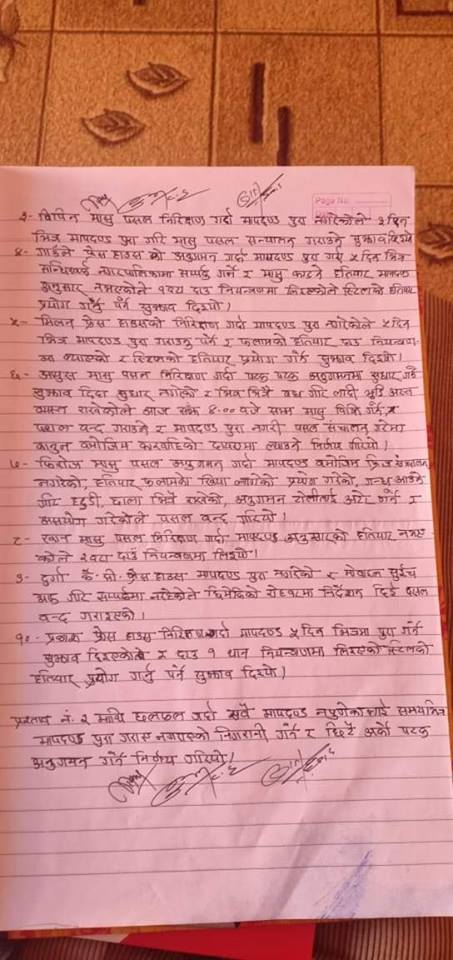 Page No.
३- विपिन मासु पसल निरिक्षण गर्दा मापदण्ड पुरा नगरेकोले ३ दिन
भित्र मापदण्ड पुरा गरि मासु पसल सन्चालन गराउने सुझाव दिइयो
४- गाईने फ्रेस हाउस को अनुगमन गर्दा मापदण्ड पुरा गर्न ५ दिन भित्र
नगरपालिकामा सम्पर्क गर्ने र मासु काट्ने हतियार मापदण्ड
अनुसार नभएकोले १ वटा दाउ नियन्त्रणमा लिइएकोले स्टिलको हतियार
प्रयोग गर्नु पर्ने सुझाव दिइयो।
५- मिलन फ्रेस हाउसको निरिक्षण गर्दा मापदण्ड पुरा नगरेकोले ५ दिन
भित्र मापदण्ड पुरा गराउनु पर्ने र फलामको हतियार दाउ नियन्त्रण-
मा ल्याएको र स्टिलको हतियार प्रयोग गर्न सुझाव दिइयो।
६- मासु पसल निरिक्षण गर्दा पटक पटक अनुगमनमा सुधार गर्न
सुझाव दिदा सुधार नगरेको र भित्र भित्रै वध गरि लादी भुडि अस्त
व्यस्त राखेकोले आज साँझ ४.०० बजे सम्म मासु बिक्रि गर्न र
पसल बन्द गराउने र मापदण्ड पुरा नगरी पसल संचालन गरेमा
कानुन बमोजिम कारवाहिको दायरामा ल्याउने निर्णय गरियो।
७- फिरोज मासु पसल अनुगमन गर्दा मापदण्ड बमोजिम फ्रिज संचालन
नगरेको, हतियार फलामको खिया लागेको प्रयोग गरेको, गन्ध आउने
गरि हड्डी, छाला भित्रै राखेको, अनुगमन टोलीलाई अटेर गर्ने र
असयोग गरेकोले पसल बन्द गरियो।
८- खान मासु पसल निरिक्षण गर्दा मापदण्ड अनुसारको हतियार नभए
कोले २ वटा दाउ नियन्त्रणमा लिइयो।
९- दुर्गा के. सी. फ्रेस हाउस मापदण्ड पुरा नगरेको र मोबाइल सुईच
अफ गरि सम्पर्कमा नरहेकोले छिमेकिको रोहबरमा निर्देशन दिई पसल
बन्द गराइएको।
१०- प्रकाश फ्रेस हाउस निरिक्षण गर्दा मापदण्ड ५ दिन भित्रमा पुरा गर्न
सुझाव दिइएकोले र दाउ १ थान नियन्त्रणमा लिइएको स्टिलको
हतियार प्रयोग गर्नु पर्ने सुझाव दिइयो।
प्रस्ताव नं. २ माथि छलफल गर्दा सबै मापदण्ड नपुगेकालाई समयभित्र
मापदण्ड पुरा गराए नगराएको निगरानी गर्ने र छिट्टै अर्को पटक
अनुगमन गर्ने निर्णय गरियो।